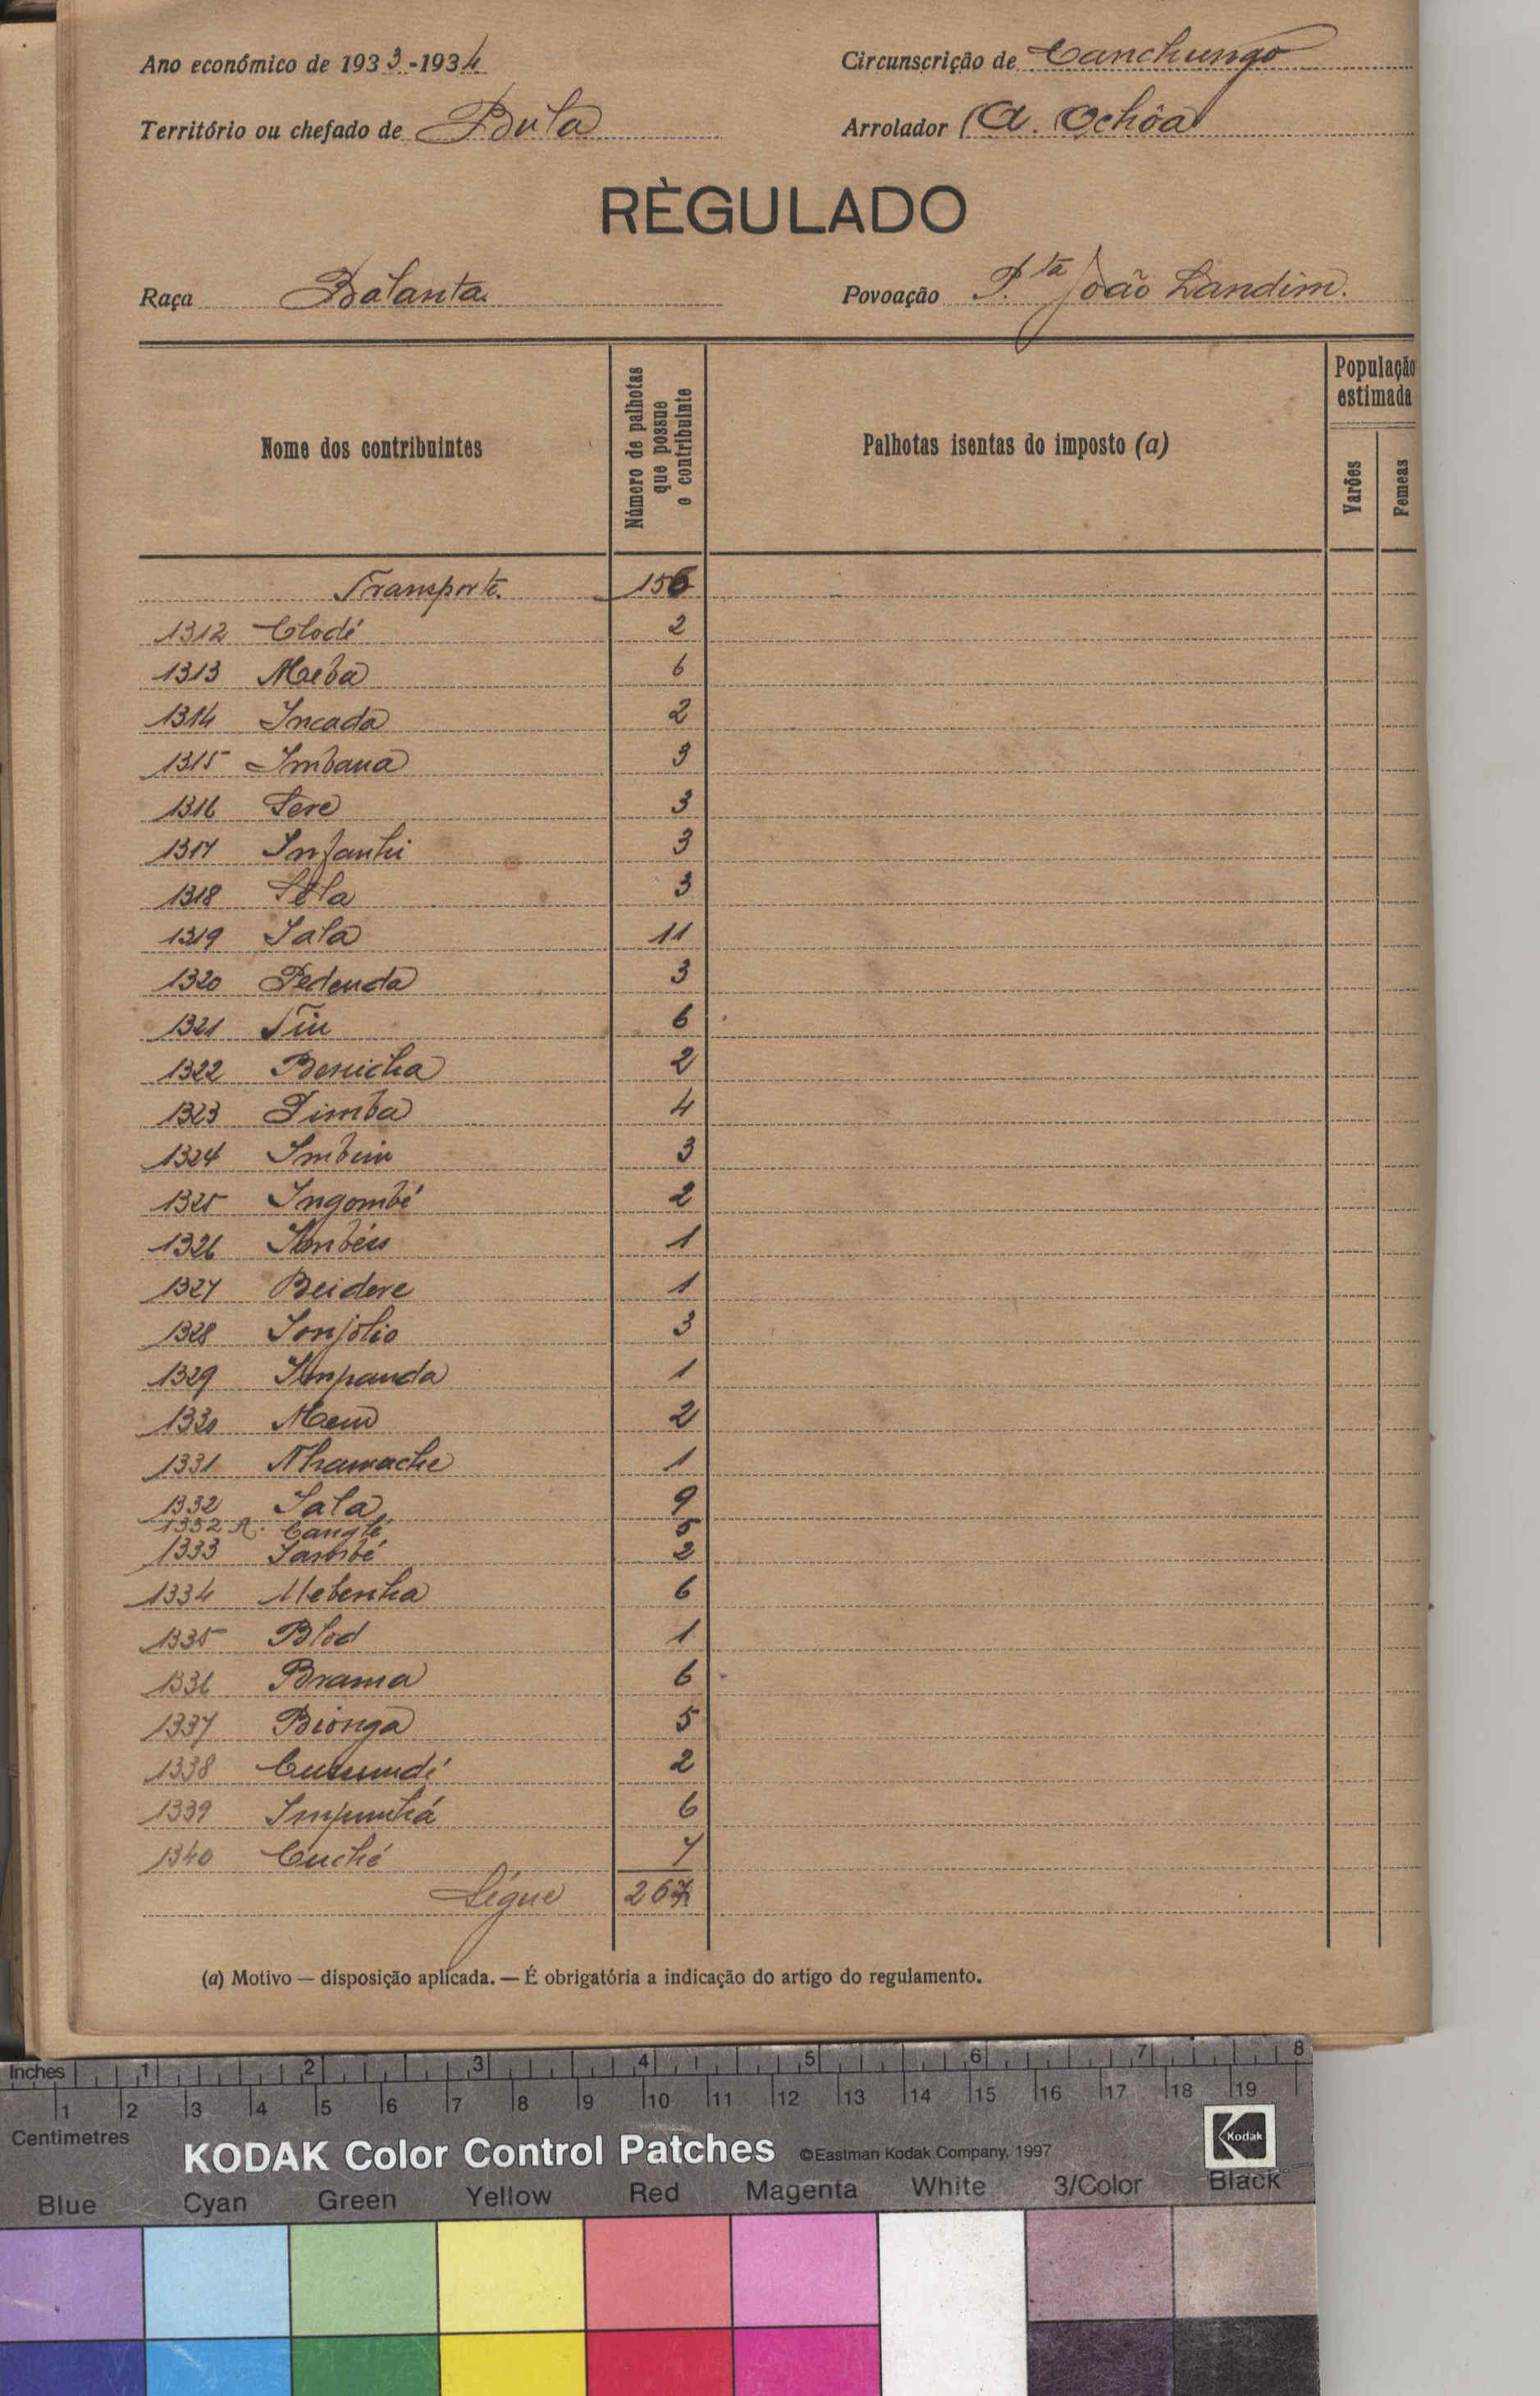 Ano económico de 1933-1934
Circunscrição de Canchungo
Território ou chefado de Bula
Arrolador A. Ochôa
RÈGULADO
Raça Balanta
Povoação P.ta João Landim.
Nome dos contribuintes
Número de palhotas que possue o contribuinte
Palhotas isentas do imposto (a)
População estimada
Varões
Femeas
Transporte. 156
1312 Clodé 2
1313 Maeba 6
1314 Incada 2
1315 Imbana 3
1316 Sere 3
1317 Infanhi 3
1318 Sela 3
1319 Sala 11
1320 Pedenda 3
1321 Tiu 6
1322 Benicha 2
1323 Pimba 4
1324 Imbim 3
1325 Ingombé 2
1326 1
1327 Beidere 1
1328 Sonjólio 3
1329 Impanda 1
1330 Maem 2
1331 Nhamache 1
1332 Sala 9
1332 A. Canglé 5
1333 Sambé 2
1334 Metenha 6
1335 Blod 1
1336 Brama 6
1337 Bionga 5
1338 2
1339 Impunhá 6
1340 Cuché 7
Ségue 267
(a) Motivo — disposição aplicada. — É obrigatória a indicação do artigo do regulamento.
Inches 1 2 3 4 5 6 7 8
1 2 3 4 5 6 7 8 9 10 11 12 13 14 15 16 17 18 19
Centimetres
KODAK Color Control Patches ©Eastman Kodak Company, 1997 Kodak
Blue Cyan Green Yellow Red Magenta White 3/Color Black